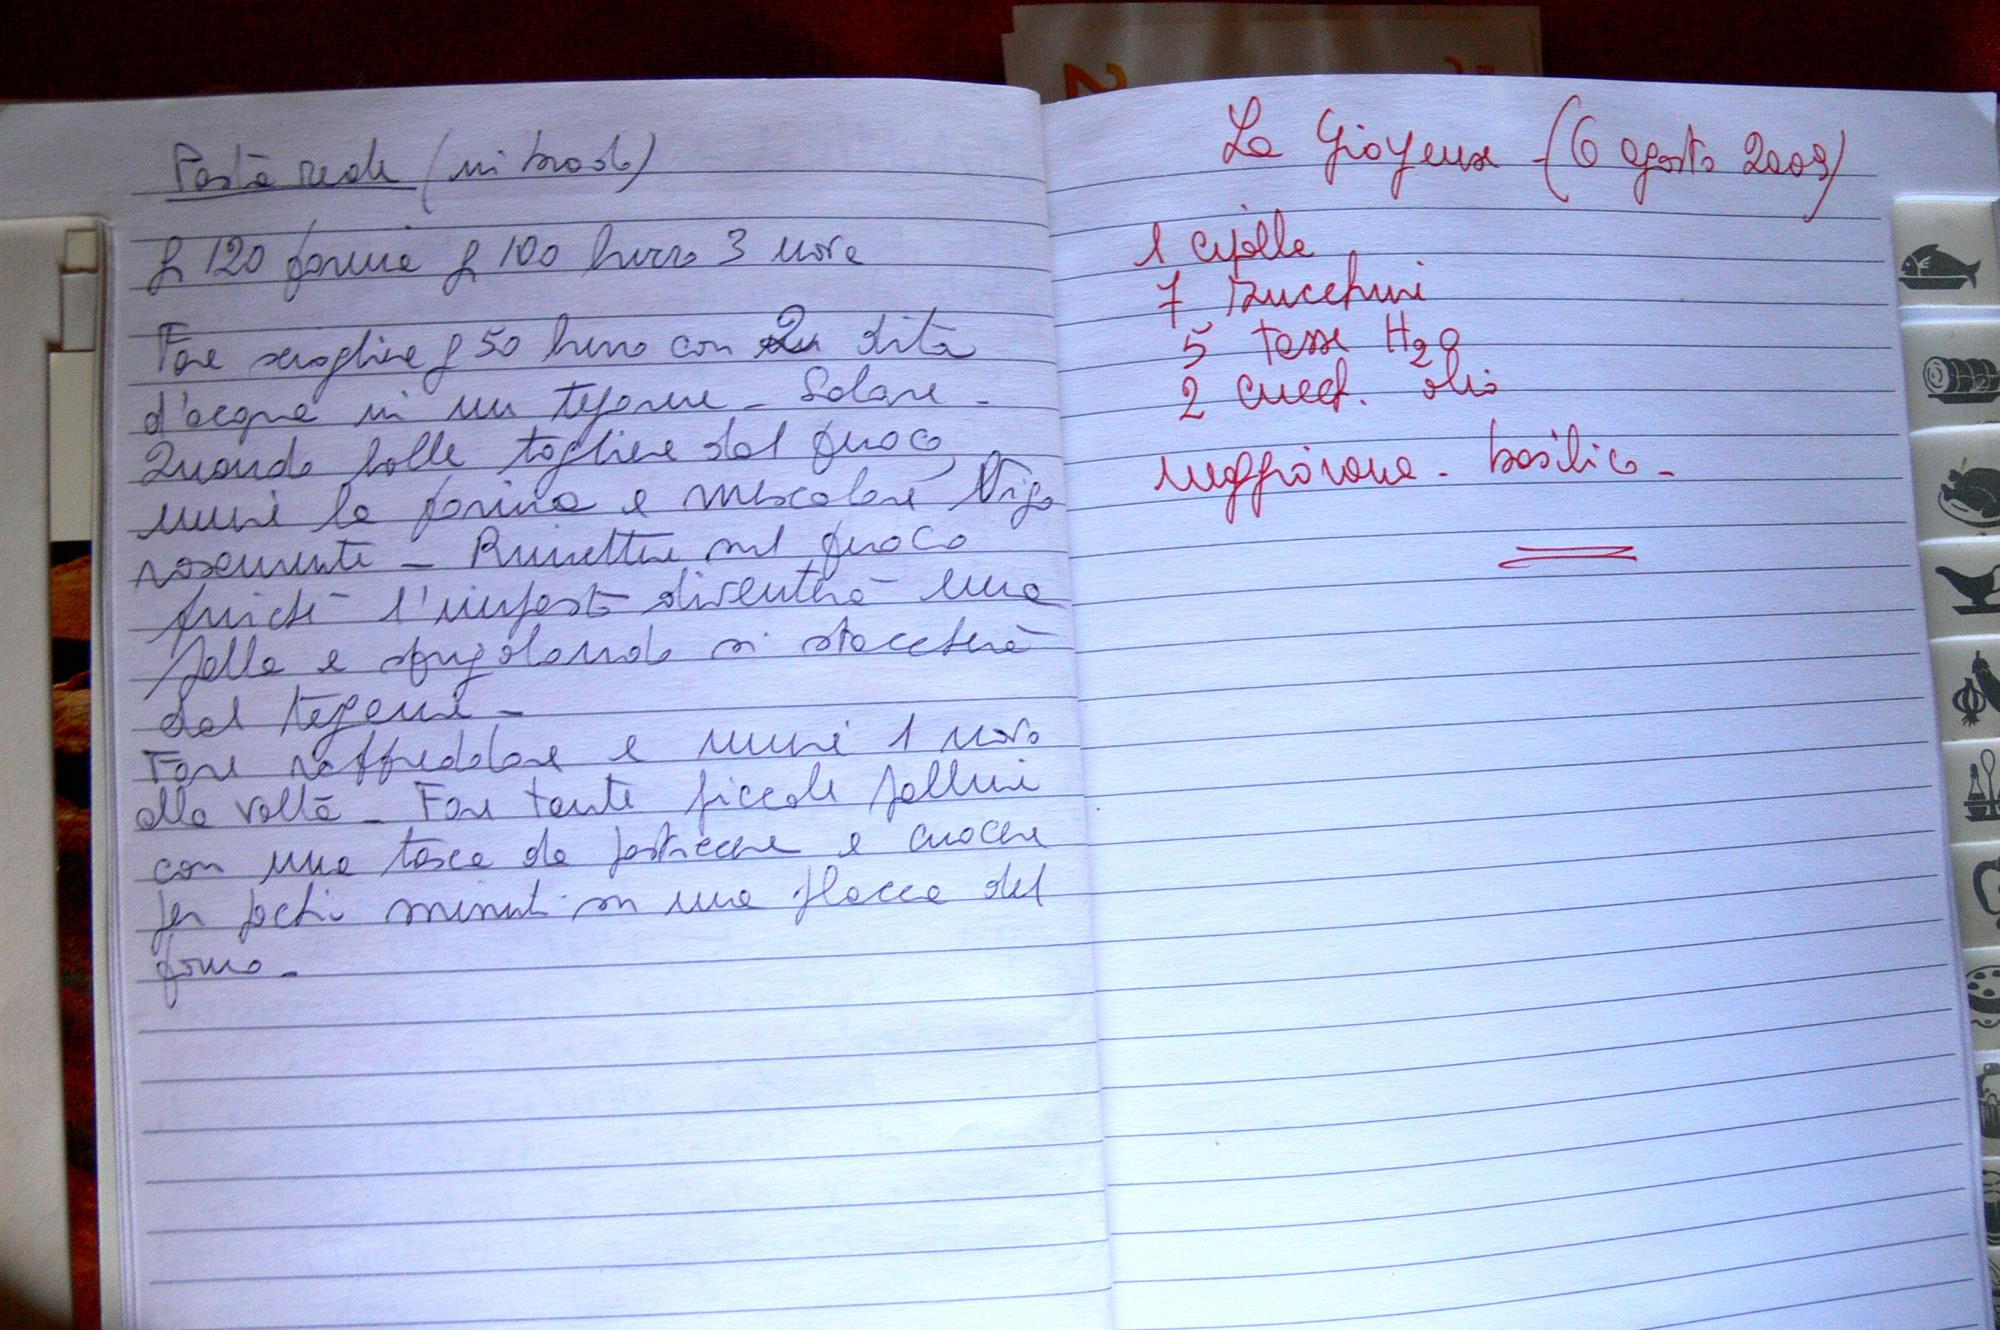 Pasta reale (in brodo)
g 120 farina g 100 burro 3 uova
Fare sciogliere g 50 burro con 2 dita
d'acqua in un tegame - Salare -
Quando bolle togliere dal fuoco,
unire la farina e mescolare Vigo
rosamente - Rimettere sul fuoco
finché l'impasto diventerà una
palla e sfrigolando si staccherà
dal tegame -
Fare raffreddare e unire 1 uovo
alla volta - Fare tante piccole palline
con una tasca da pasticcere e cuocere
per pochi minuti in una placca del
forno -
La Gioyeuse - (6 agosto 2009)
1 cipolla
7 zucchini
5 tasse H2O
2 cucch. olio
maggiorana - basilico -
2